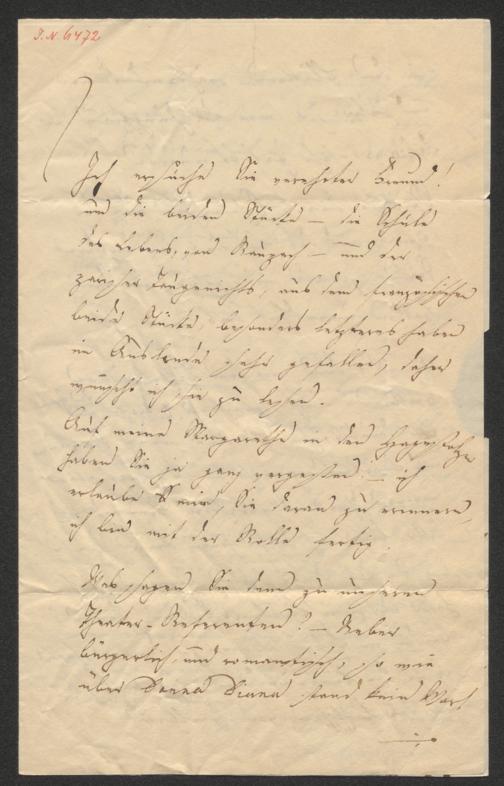 I.N. 61472
Ich ersuche Sie verehrter Freund!
um die beiden Stücke – die Schule
des Lebens, von Raupach – und der
pariser Taugenichts, aus dem französischen
beide Stücke, besonders letzteres haben
im Auslande sehr gefallen, daher
wünscht ich sie zu lesen.
Auf meine Margarethe in den Hagestolzen
haben Sie ja ganz vergessen – ich
erlaube mir, Sie daran zu erinnern,
ich bin mit der Rolle fertig.
Was sagen Sie denn zu unseren
Theater-Referenten? – Ueber
bürgerlich und romantisch, so wie
über Donna Diana stand kein Wort